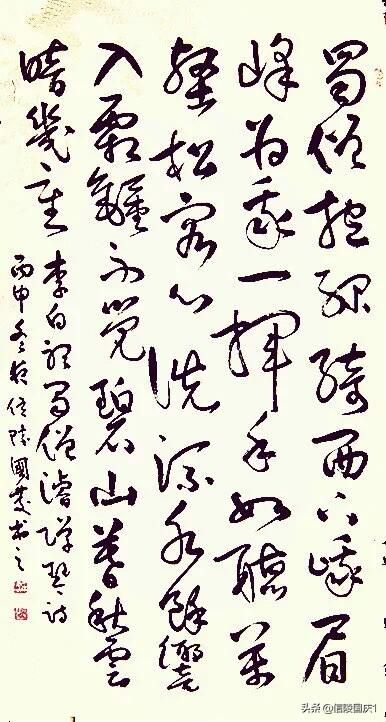 蜀僧抱綠綺西下峨眉
峰為我一揮手如聽萬
壑松客心洗流水餘響
入霜鐘不覺碧山暮秋雲
暗幾重
李白聽蜀僧濬彈琴詩
丙申冬於信陵國慶书之
头条 @信陵国庆1